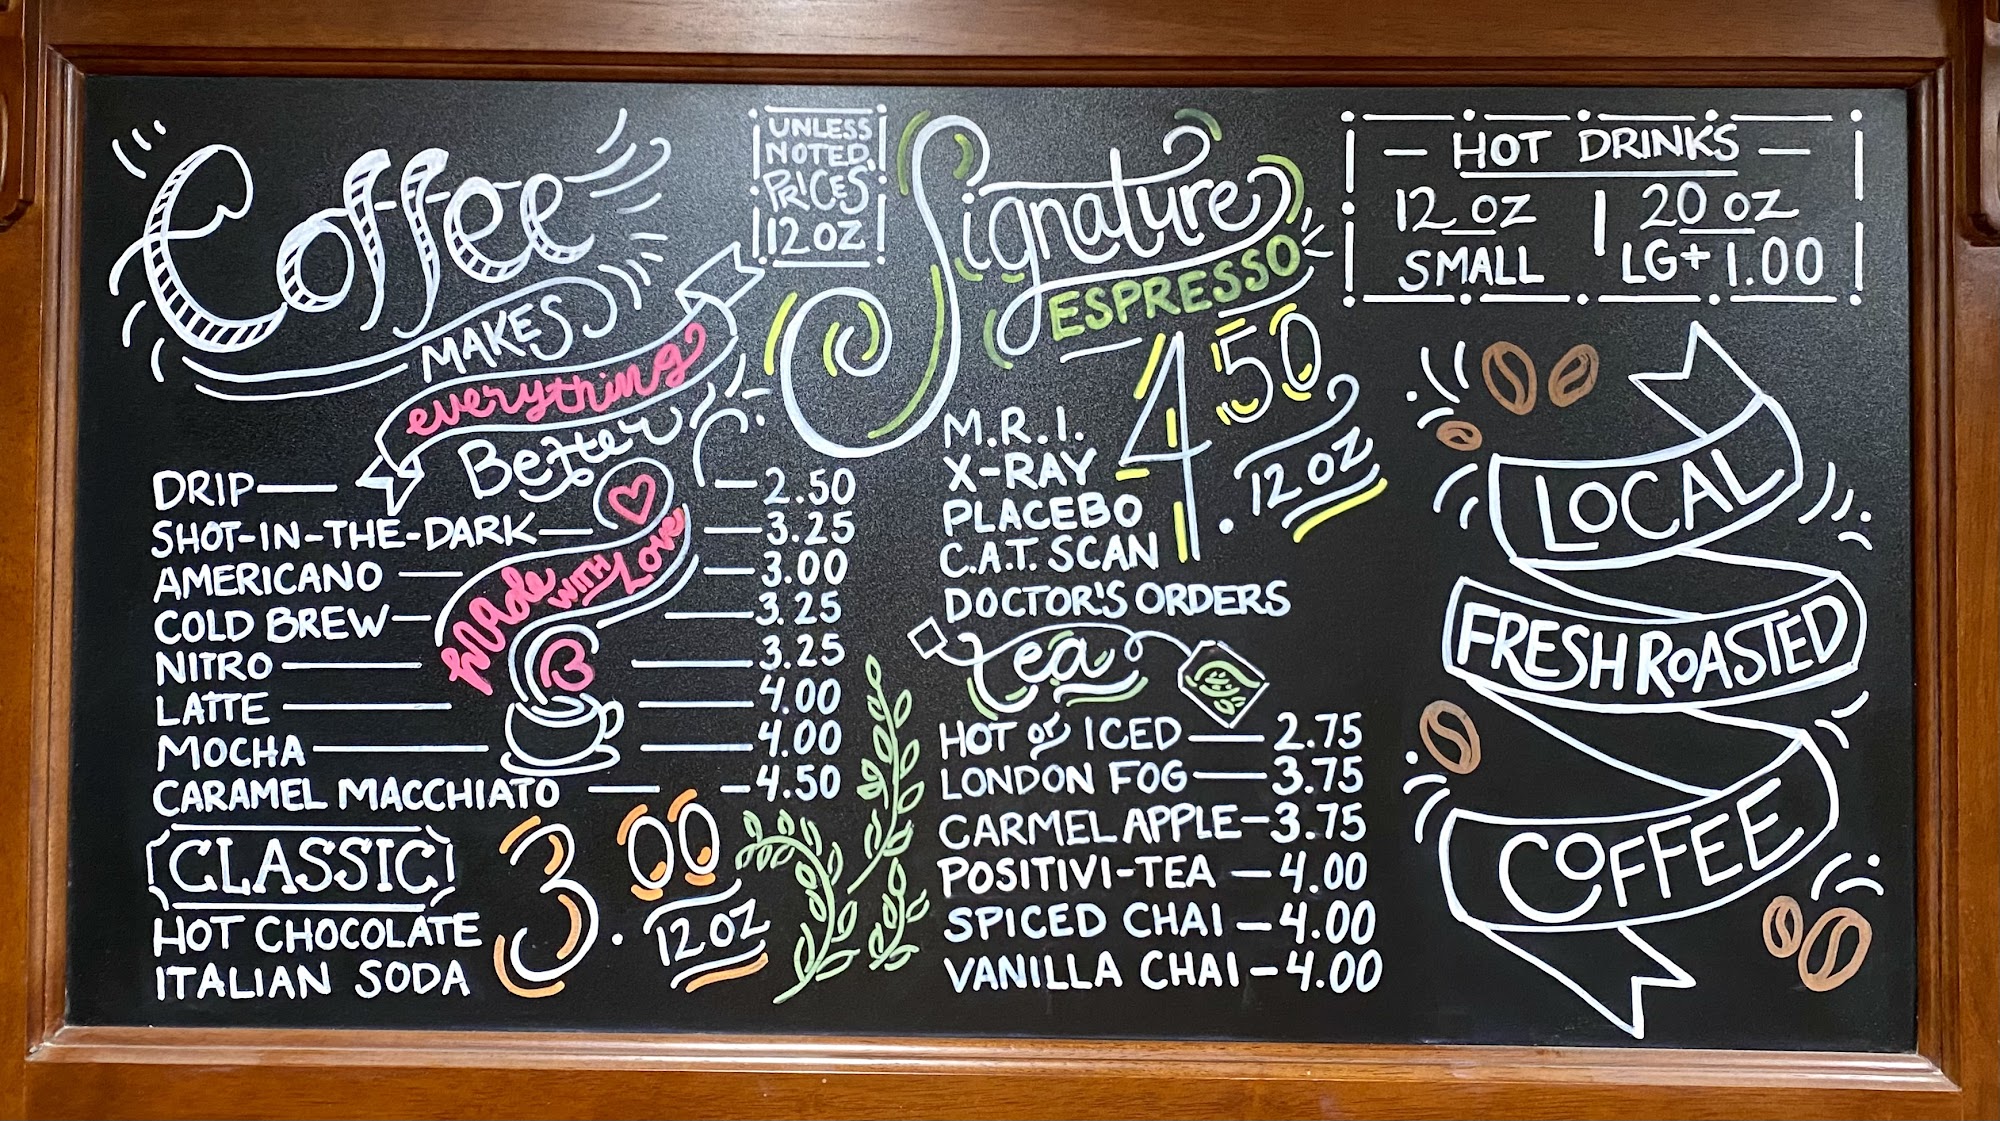 Coffee
MAKES
everything
Better
Made WITH Love
UNLESS
NOTED,
PRICES
12 OZ
DRIP 2.50
SHOT-IN-THE-DARK 3.25
AMERICANO 3.00
COLD BREW 3.25
NITRO 3.25
LATTE 4.00
MOCHA 4.00
CARAMEL MACCHIATO 4.50
CLASSIC
3.00
12 OZ
HOT CHOCOLATE
ITALIAN SODA
Signature
ESPRESSO
4.50
12 OZ
M.R.I.
X-RAY
PLACEBO
C.A.T. SCAN
DOCTOR'S ORDERS
tea
HOT or ICED 2.75
LONDON FOG 3.75
CARMEL APPLE 3.75
POSITIVI-TEA 4.00
SPICED CHAI 4.00
VANILLA CHAI 4.00
HOT DRINKS
12 oz | 20 oz
SMALL LG+1.00
LOCAL
FRESH ROASTED
COFFEE